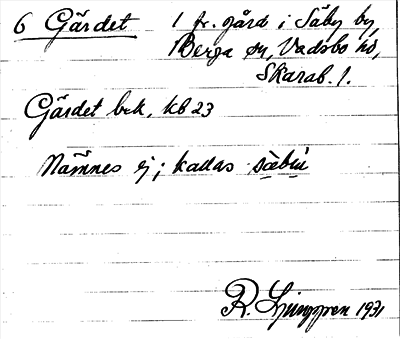 6 Gärdet 1 fr. gård i Säby by,
Berga sn, Vadsbo hd,
Skarab. l.
Gärdet bek, kb 23
Nämnes ej; kallas
R. Ljunggren 1931